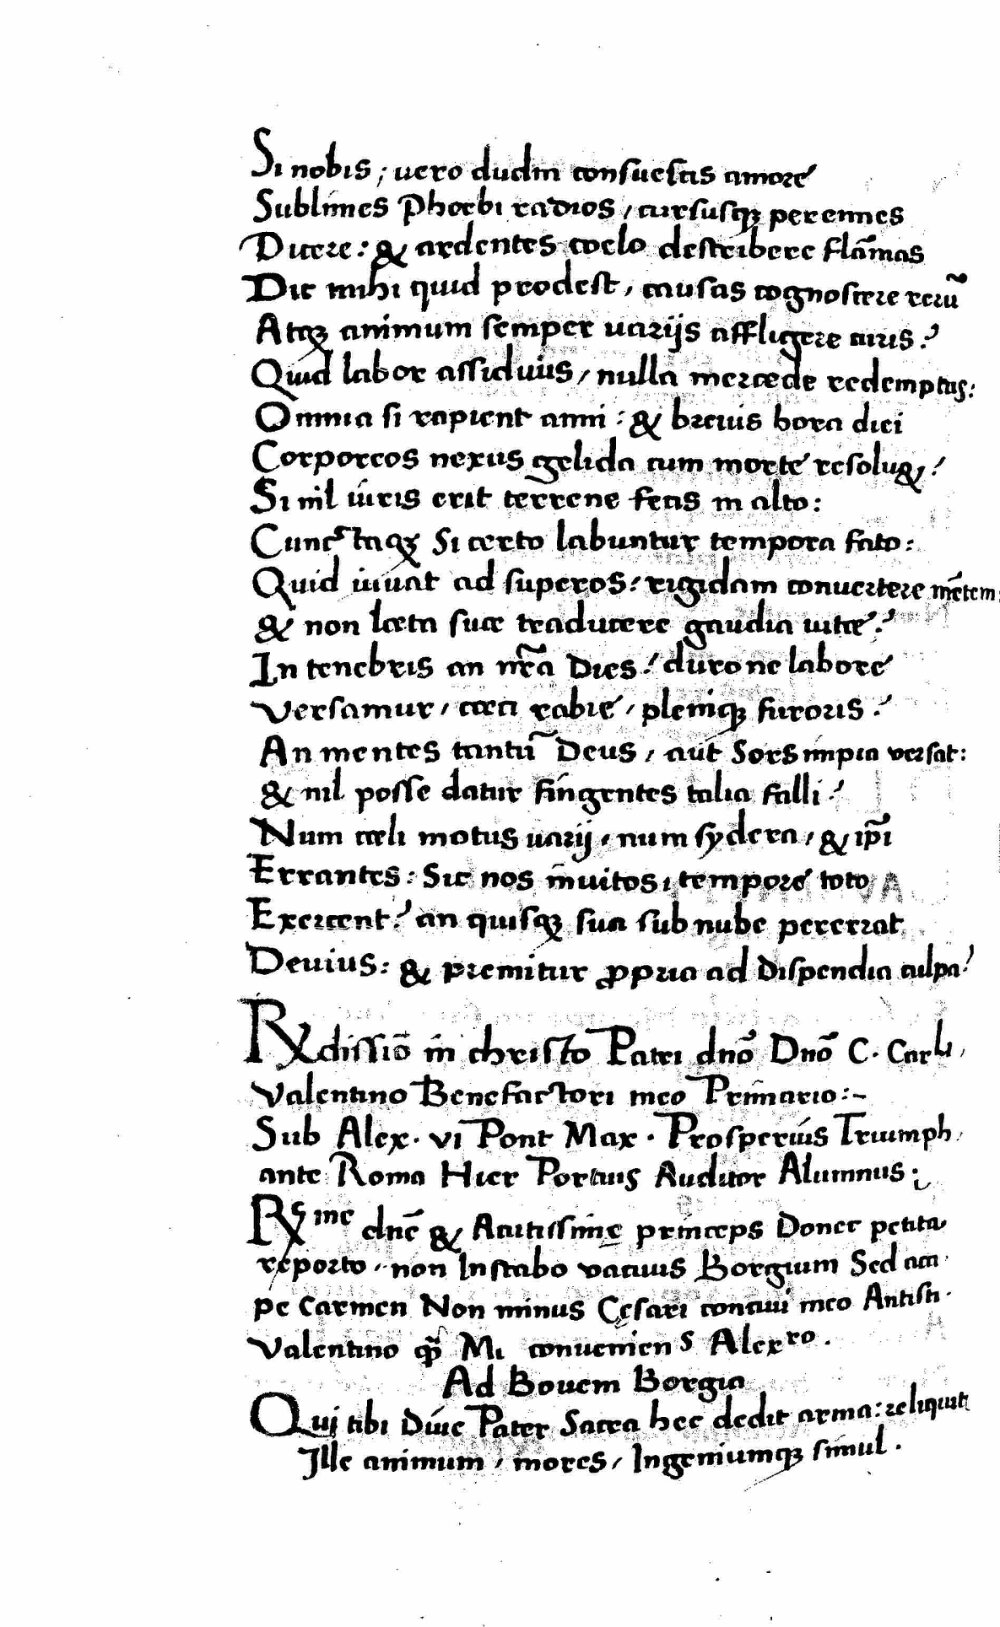 Si nobis; uero dudm consuetas amore
Sublimes Phoebi radios, cursusq; perennes
Dicere: & ardentes coelo describere flāmas
Dic mihi quid prodest, causas cognoscere rerū
Atq; animum semper uarijs affligere curis?
Quid labor assiduus, nulla mercede redemptus:
Omnia si rapient anni: & breuis hora diei
Corporeos nexus gelida cum morte resolu&!
Si nil iuris erit terrene feas in alto:
Cunctaq; Si certo labuntur tempora fato:
Quid iuuat ad superos: rigidam conuertere mētem:
& non læta suæ traducere gaudia uitæ?
In tenebris an nr̄a dies! duro ne labore
Versamur, cæci rabie, pleniq; furoris?
An mentes tantū Deus, aut Sors impia versat:
& nil posse datur fingentes talia falli?
Num cæli motus uarij, num sydera, & ip̄i
Errantes: Sic nos inuitos, tempore toto
Exercent? an quisq; sua sub nube pererrat
Deuius: & premitur ꝓpria ad dispendia culpa?
Rx̄dissiō in christo Patri dnō Dnō C. Carli,
Valentino Benefactori meo Primario:-
Sub Alex. vi Pont Max. Prosperius Triumph,
ante Roma Hier Portius Auditor Alumnus:
R̄x me dnē & Acutissime princeps Donec petita,
reporto, non Instabo vacuus Borgium Sed acci
pe Carmen Non minus Cęsari conaui meo Antisti.
Valentino qȝ Mi conueniens Alexro.
Ad Bouem Borgia
Qui tibi Diue Pater Sacra hec dedit arma: reliquit
Ille animum, mores, Ingeniumq; simul.